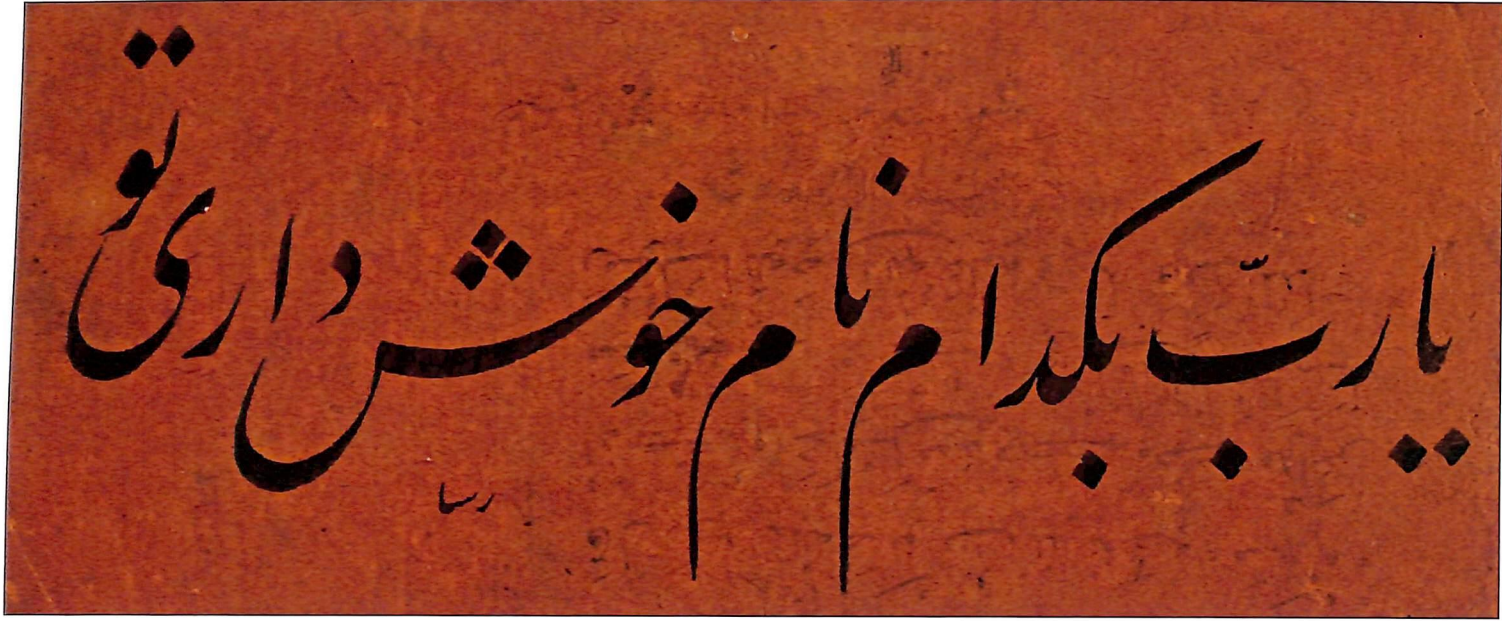 یا ربّ بکدام نام خوش داری تو
رسا